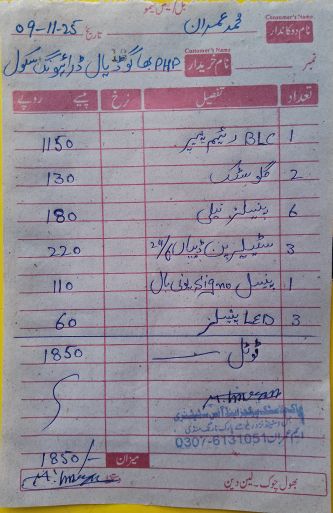 بل / کیش میمو
نام دوکاندار محمد عمران تاریخ 09-11-25
Customer's Name
نام خریدار PHP ڈرائیونگ سکول نمبر
Customer's Name
تعداد تفصیل نرخ پیسے روپے
1 BLC ریم پیپر 1150
2 گلو سٹک 130
6 پنسلز نیلی 180
3 سٹیپلر پن ڈبیاں 24/6 220
1 پنسل Signo یونی بال 110
3 LED پنسلز 60
ٹوٹل 1850
M. Imran
0307-6131051 ایم عمران
میزان 1850/-
M. Imran
بھول چوک ۔ لین دین